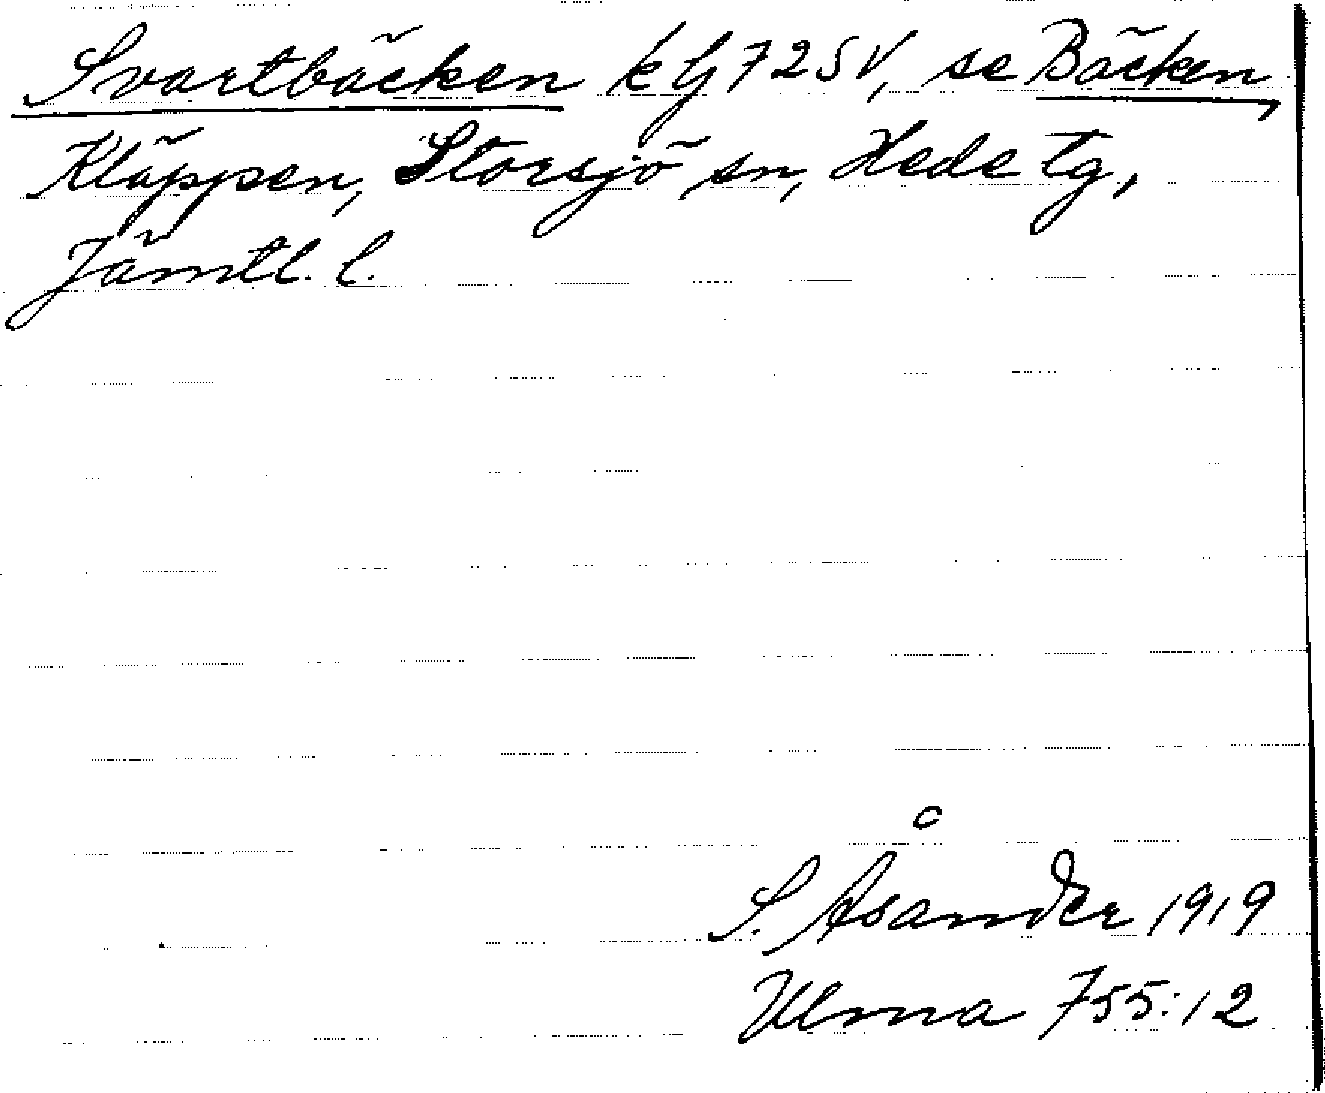 Svartbäcken kg 725V, se Bäcken,
Kläppen, Storsjö sn, Hede tg,
Jämtl. l.
S. Åsander 1919
Ulma 755:12